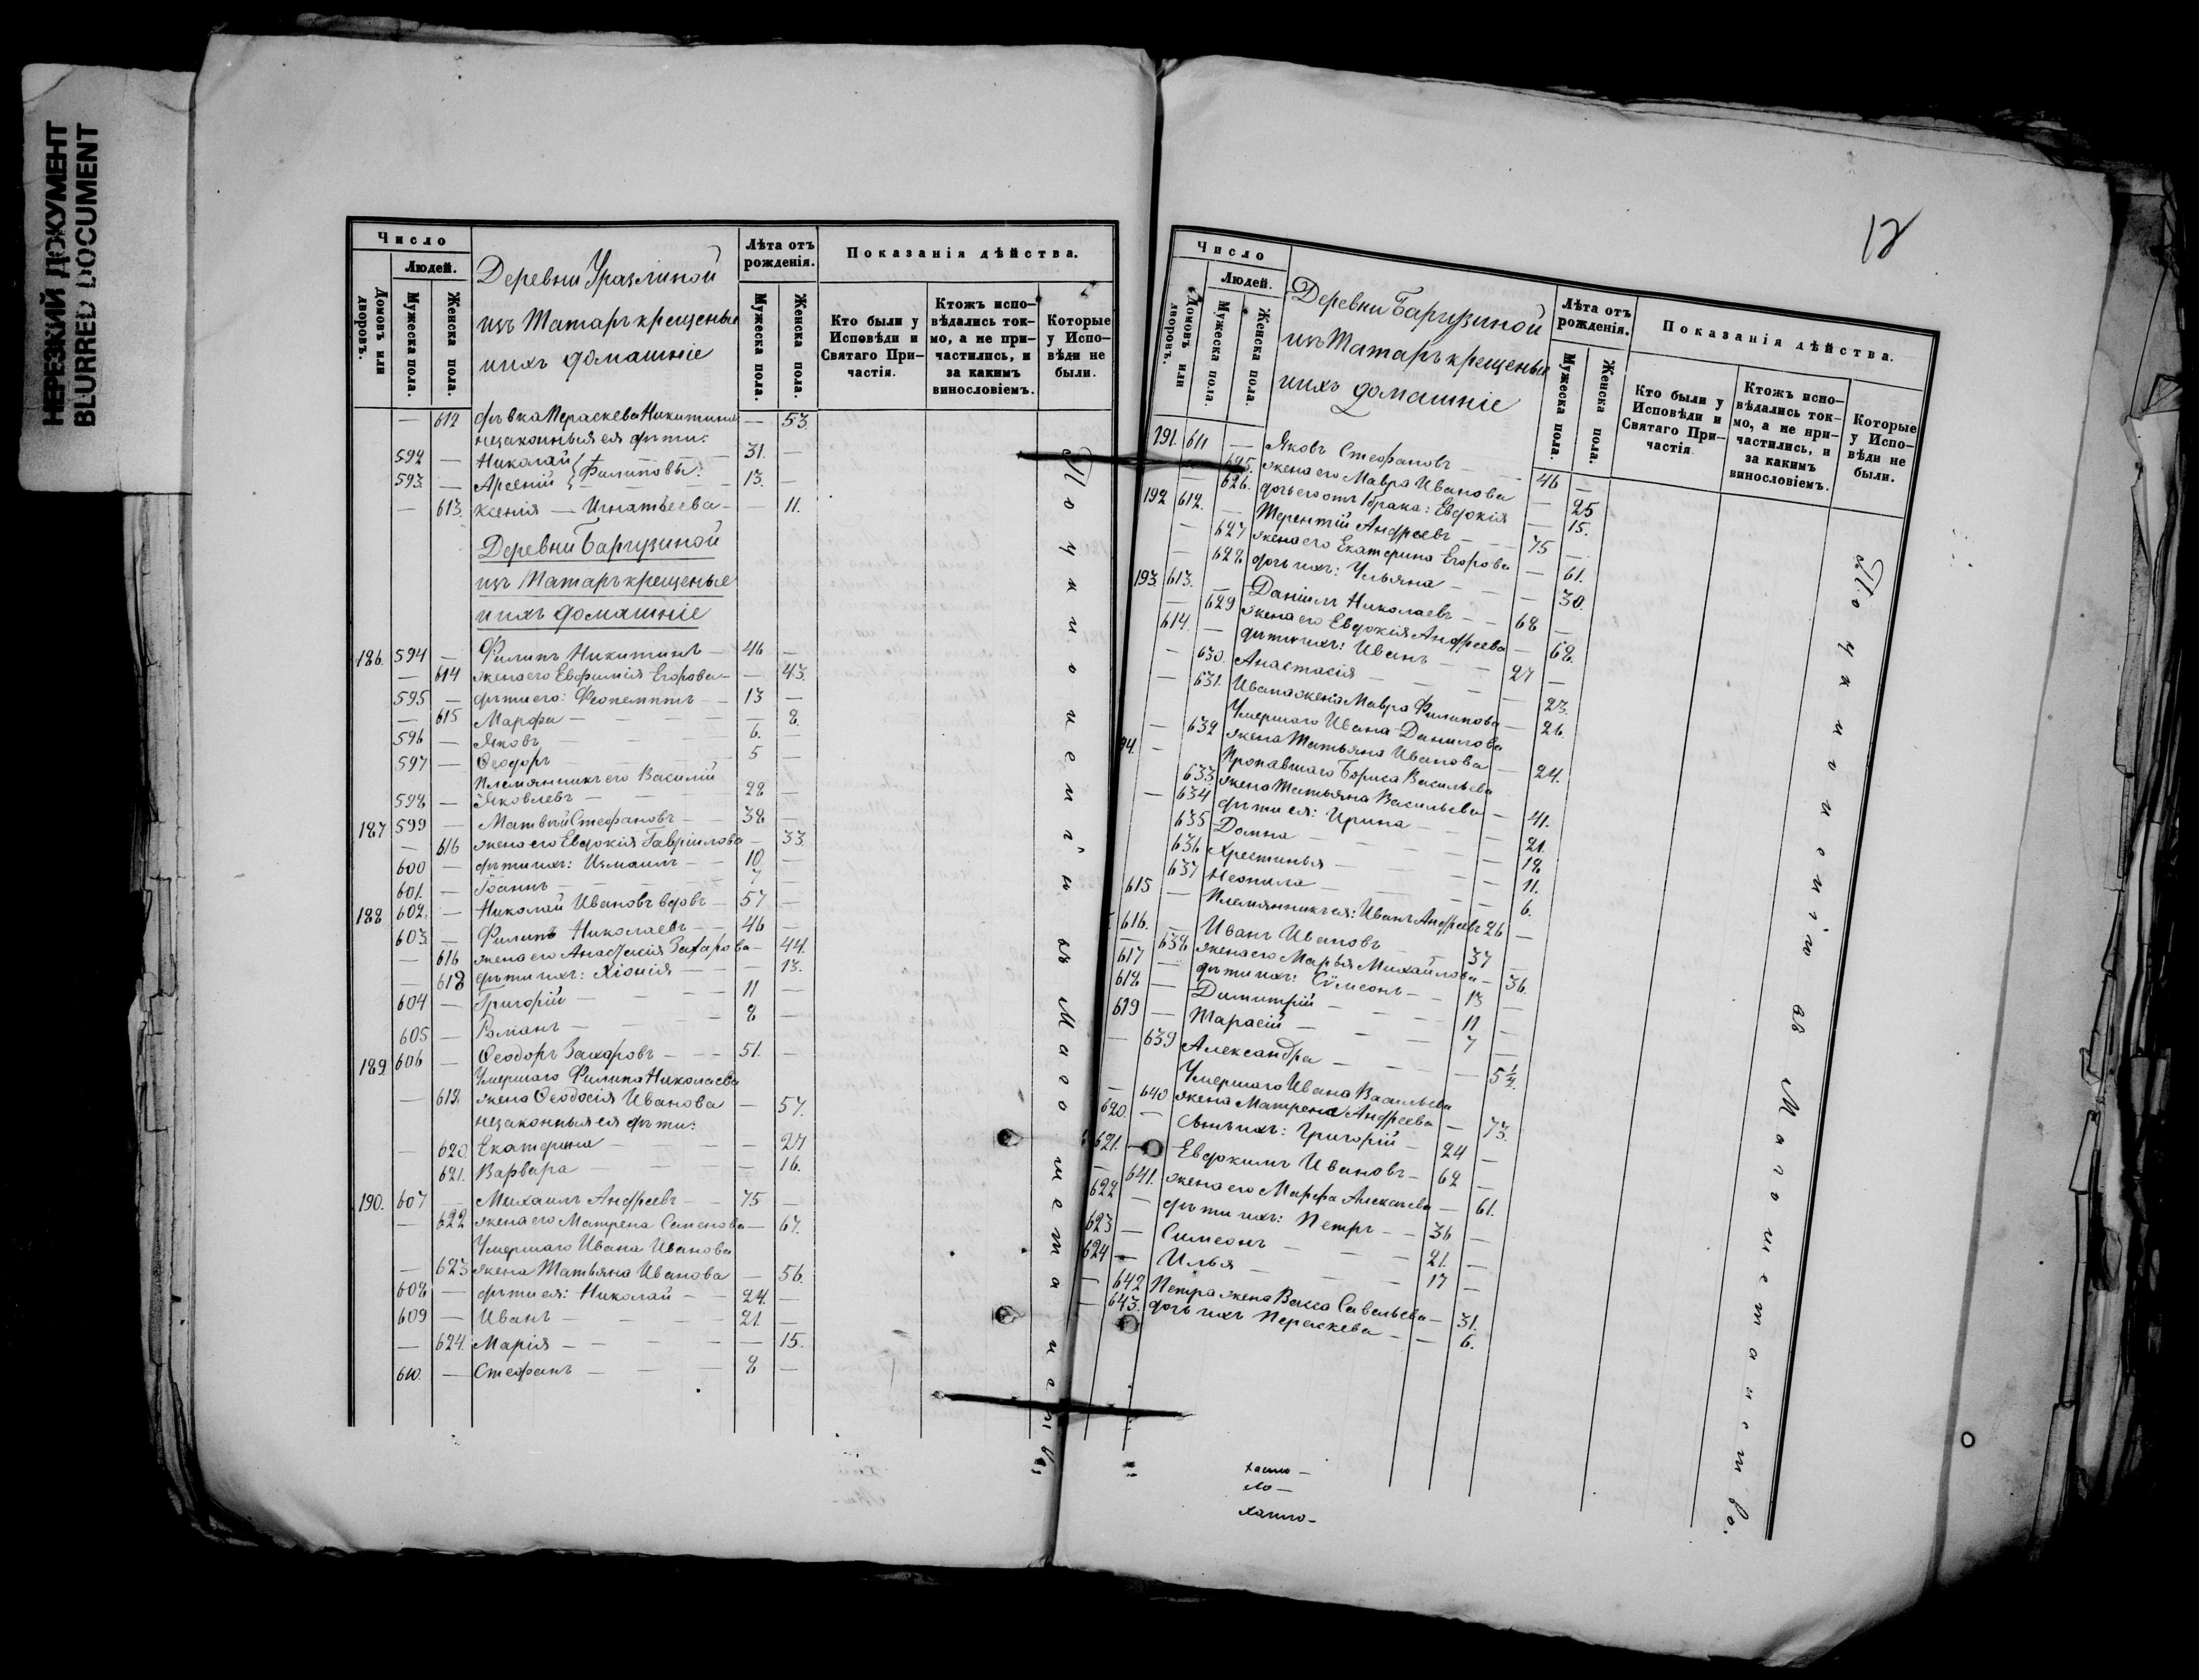 НЕРЕЗКИЙ ДОКУМЕНТ
BLURRED DOCUMENT
Число
Людей.
Домовъ или дворовъ.
Мужеска пола.
Женска пола.
Деревни Уразлиной
изъ Татаръ крещеные
и ихъ домашніе
Лѣта отъ рожденія.
Мужеска пола.
Женска пола.
Показанія дѣйства.
Кто были у Исповѣди и Святаго Причастія.
Ктожъ исповѣдались токмо, а не причастились, и за какимъ винословіемъ.
Которые у Исповѣди не были.
— 612 дѣвка Параскева Никитина — 53
незаконныя ея дѣти:
592 — Николай } Филиповы 31. —
593. — Арсеній } 13. —
— 613. Ксенія — Игнатьева — — 11.
Деревни Баргузиной
изъ Татаръ крещеные
и ихъ домашніе
186. 594 — Филипъ Никитинъ — 46 —
— 614 жена его Евфимія Егорова — — 43.
595 — дѣти его: Феопемптъ — — 13 —
— 615 Марфа — — — — 8.
596 — Яковъ — — — 6. —
597 — Ѳеодоръ — — — 5 —
Племянникъ его Василій
598 — Яковлевъ — — — 28 —
187 599 — Матвѣй Стефановъ — — 38 —
— 616 жена его Евдокія Гавріилова — 33.
600 — дѣти ихъ: Измаилъ — — 10 —
601. — Іоаннъ — — — 7 —
188 602. — Николай Ивановъ вдовъ — 57 —
603. — Филипъ Николаевъ — — 46 —
— 616 жена его Анастасія Захарова — 44.
— 618 дѣти ихъ: Хіонія — — — 13.
604 — Григорій — — — 11 —
605 — Романъ — — — 8 —
189. 606 — Ѳеодоръ Захаровъ — — — 51. —
Умершаго Филипа Николаева
— 619. жена Ѳеодосія Иванова — 57.
незаконныя ея дѣти:
— 620. Екатерина — — 27
621. Варвара — — — 16.
190. 607 — Михаилъ Андреевъ — — 75 —
— 622 жена его Матрена Семенова — 67.
Умершаго Ивана Иванова
— 623 жена Татьяна Иванова — 56.
608 — дѣти ея: Николай — — 24. —
609 — Иванъ — — — 21 —
— 624. Марія — — — — 15.
610. — Стефанъ — — — 8 —
12
Число
Людей.
Домовъ или дворовъ.
Мужеска пола.
Женска пола.
Деревни Баргузиной
изъ Татаръ крещеные
и ихъ домашніе
Лѣта отъ рожденія.
Мужеска пола.
Женска пола.
Показанія дѣйства.
Кто были у Исповѣди и Святаго Причастія
Ктожъ исповѣдались токмо, а не причастились, и за какимъ винословіемъ.
Которые у Исповѣди не были.
191. 611 — Яковъ Стефановъ — — 46 —
625. жена его Мавра Иванова — 25
— 626. дочь его отъ 1 брака: Евдокія — 15.
192 612. — Терентій Андреевъ — — 75 —
— 627 жена его Екатерина Егорова — 61.
— 628 дочь ихъ: Ульяна — — — 30.
193. 613. — Даніилъ Николаевъ — — 68 —
629 жена его Евдокія Андреева — 68.
614. — дѣти ихъ: Иванъ — — 27 —
— 630. Анастасія — — — 23.
— 631. Ивана жена Мавра Филипова — 26.
Умершаго Ивана Данилова
— 632 жена Татьяна Иванова — 24.
94. — Пропавшаго Бориса Васильева
633 жена Татьяна Васильева — 41.
— 634 дѣти ея: Ирина — — — 21.
635 Домна — — — 18
636 Христинья — — — 11.
637 Неонила — — — 6.
615 — Племянникъ ея: Иванъ Андреевъ 26 —
616. — Иванъ Ивановъ — — 37 —
— 638 жена его Марья Михайлова — 36.
617 — дѣти ихъ: Сѵмеонъ — — 13 —
618 — Димитрій — — — 11 —
619 — Тарасій — — — 7 —
— 639 Александра — — — 5½.
Умершаго Ивана Васильева
— 640 жена Матрена Андреева — 73.
620. — Сынъ ихъ: Григорій — 24 —
621. — Евдокимъ Ивановъ — 62 —
— 641. жена его Марфа Алексѣева — 61.
622 — дѣти ихъ: Петръ — — 36 —
623 — Симеонъ — — — 21. —
624 — Илья — — — 17 —
— 642 Петра жена Васса Савельева — 31.
— 643. дочь ихъ Параскева — — 6.